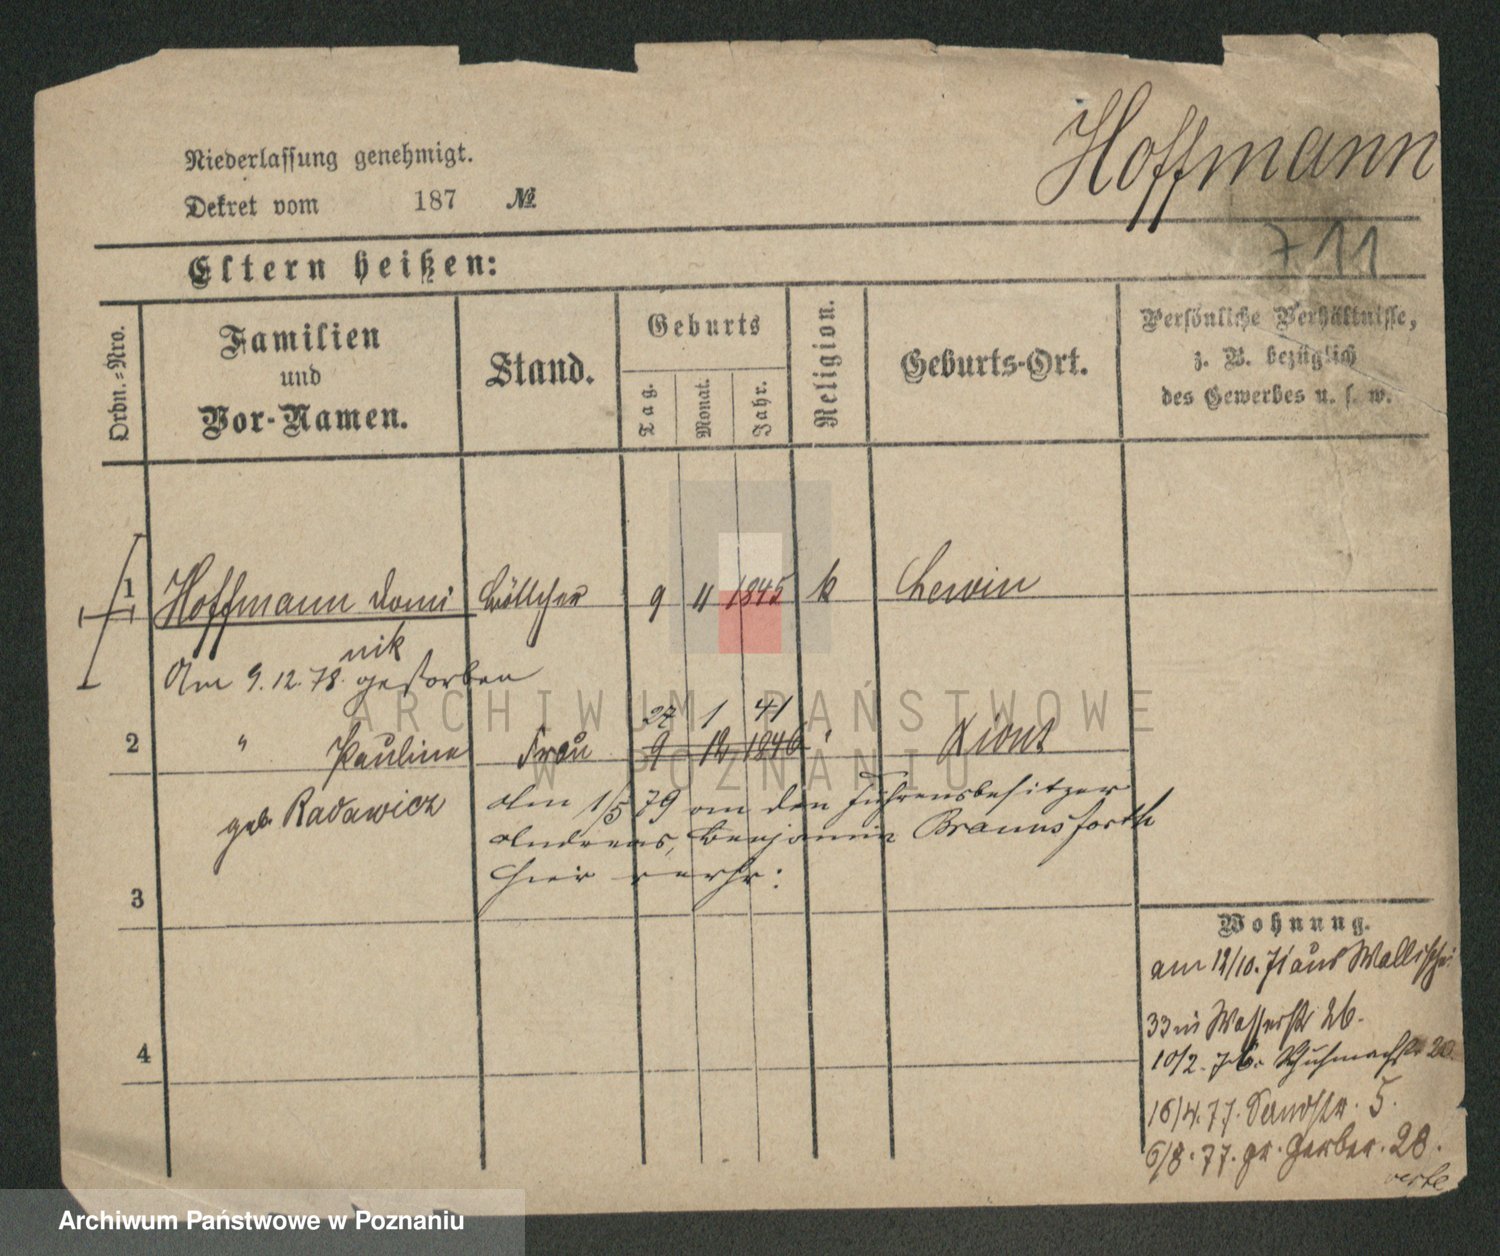 Hoffmann
Niederlassung genehmigt.
Dekret vom 187 №
711
Eltern heißen:
Ordn.-Nro.
Familien
und
Vor-Namen.
Stand.
Geburts
Tag.
Monat.
Jahr.
Religion.
Geburts-Ort.
Persönliche Verhältnisse,
z. B. bezüglich
des Gewerbes u. s. w.
1 Hoffmann Domi Böttcher 9 11 1845 k Lewin
nik
Am 9.12.78. gestorben
27 1 41
2 " Pauline Frau 9 12 1846 " Xions
geb. Radawicz
Am 1/5 79 an den Fuhrenbesitzer
Andreas, Benjamin Braunsforth
hier verhr:
3
4
Wohnung.
am 12/10. 71 aus Wallischei
33 in Wasserstr 26.
10/2. 76. Schuhmachstr 20
16/4. 77. Sandstr. 5.
6/8. 77. gr. Gerber. 28.
verte
ARCHIWUM PAŃSTWOWE
W POZNANIU
Archiwum Państwowe w Poznaniu